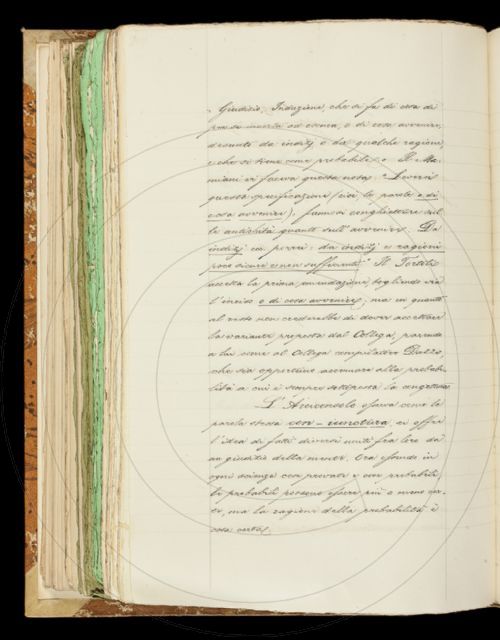 „ Giudizio, Induzione, che si fa di cosa di
per se incerta od oscura, o di cose avvenire,
desunti da indizj e da qualche ragione,
e che si tiene come probabile. „ Il Ma-
miani vi faceva questa nota: „ Leverei
questa specificazione (cioè le parole o di
cose avvenire). Fannosi conghietture sul-
le antichità quanto sull'avvenire. Da
indizj ex porrei: da indizj e ragioni
poco sicure e non sufficienti." Il Tortoli
accetta la prima emendazione, togliendo via
l'inciso o di cose avvenire, ma in quanto
al resto non crederebbe di dover accettare
la variante proposta dal Collega, parendo
a lui come al Collega compilatore Dazzo,
che sia opportuno accennare alla probabi-
lità a cui è sempre sottoposta la congettura.
L'Arciconsolo osserva come la
parola stessa con-iunctura ci offra
l'idea di fatti diversi uniti fra loro da
un giudizio della mente. Ora essendo in
ogni scienza cose provate e cose probabili,
le probabili possono essere più o meno cer-
te, ma la ragione della probabilità è
cosa certa.